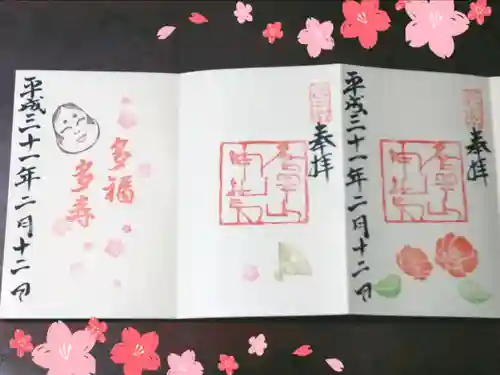 奉拝
平成三十一年二月十二日
奉拝
多福
多寿
平成三十一年二月十二日